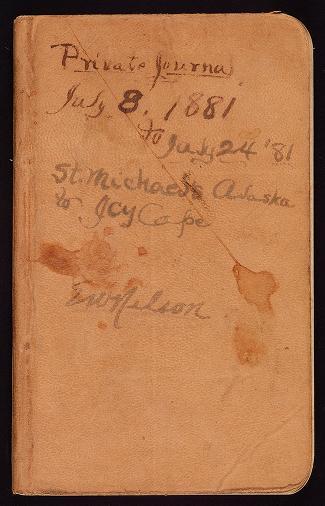 Private Journal
July 8. 1881
to July 24 '81
St. Michaels Alaska
to Icy Cape
E W Nelson